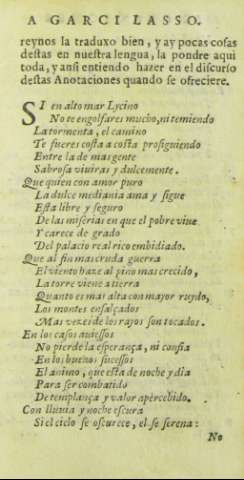 A GARCI LASSO.
reynos la traduxo bien, y ay pocas cosas
destas en nuestra lengua, la pondre aqui
toda, y ansi entiendo hazer en el discurso
destas Anotaciones quando se ofreciere.
SI en alto mar Lycino
No te engolfares mucho, ni temiendo
La tormenta, el camino
Te fueres costa a costa prosiguiendo
Entre la de mas gente
Sabrosa viuiras y dulcemente.
Que quien con amor puro
La dulce mediania ama y sigue
Està libre y seguro
De las miserias en que el pobre viue
Y carece de grado
Del palacio real rico embidiado.
Que al fin mas cruda guerra
El viento haze al pino mas crecido,
La torre viene a tierra
Quanto es mas alta con mayor ruydo,
Los montes ensalçados
Mas vezes de los rayos son tocados.
En los casos auessos
No pierde la esperança, ni confia
En los buenos sucessos
El animo, que esta de noche y dia
Para ser combatido
De templança y valor apercebido.
Con lluuia y noche escura
Si el cielo se oscurece, el se serena:
No